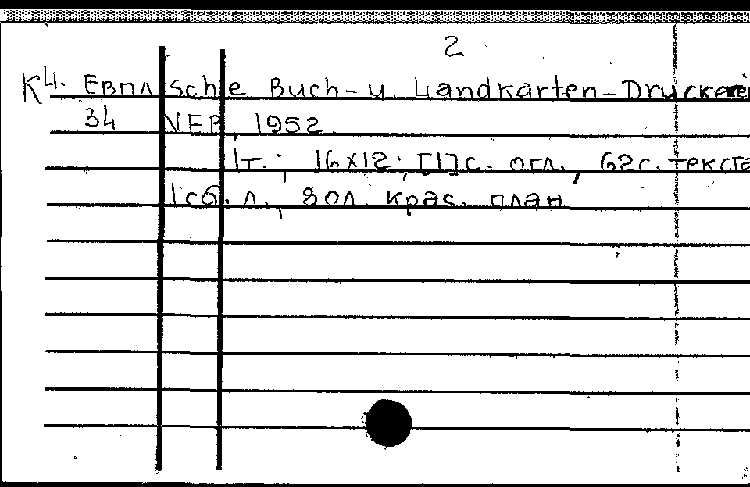 2
К4. Евпл sche Buch- u. Landkarten-Druckerei
34 VEB, 1952.
1т.; 16x12; [1]с. огл., 62с. текста
1сб. л., 80л. крас. план